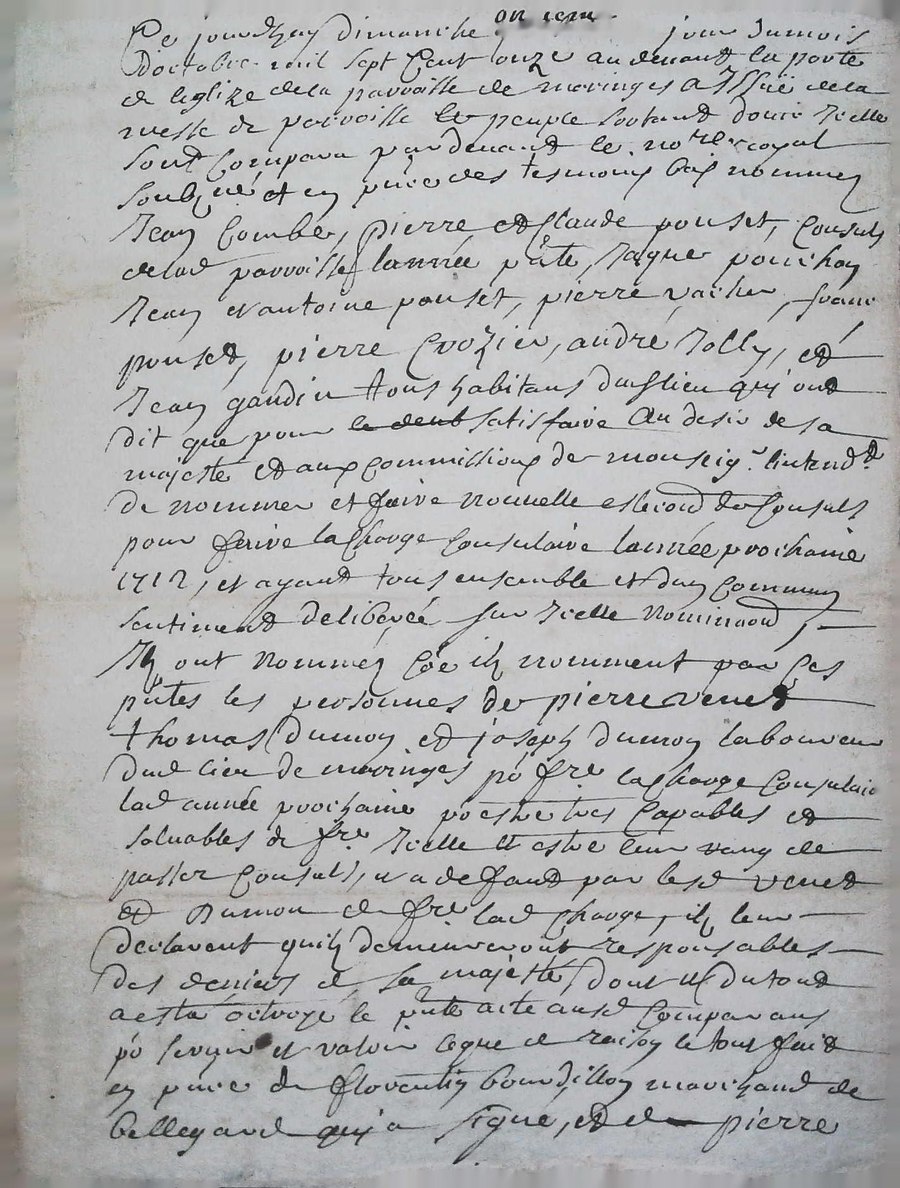 Ce jourdhuy dimanche onziem jour du mois
doctobre mil sept Cent onze au devant la porte
de leglize de la parroisse de maringes a Issüe de la
messe de parroisse le peuple sortant dicelle
sont Comparu pardevant le no.re royal
soubz.né et en p.nce des tesmoins bas nommez
Jean Combe, pierre et Claude pouset, Consuls
de lad parroisse lannée p.nte, Jaque ponchon
Jean et antoine pouset, pierre vacher, franc
pouset, pierre Crozier, andré Jolly, et
Jean gaudin tous habitans dud lieu qui ont
dit que pour le deub satisfaire Au desir de sa
majeste et aux Commissions de monseig.r lintend.t
de nommer et faire nouvelle eslection de Consuls
pour faire la Charge Consulaire lannée prochaine
1712, et ayant tous ensemble et dun Commun
sentiment deliberée sur Icelle Nominaon,
Ilz ont nommez Coe ilz nomment par Ces
p.ntes les personnes de pierre venet
thomas Dumon et joseph dumon laboureur
dud lieu de maringes po fre la Charge Consulaire
lad année prochaine po estre tres Capables et
solvables de fre Icelle et estre leur rang de
passer Consuls, et a defaud par lesd venet
et Dumon de fre lad Charge, ilz leur
declarent quilz demeureront responsables
des deniers de sa majeste, dont et du tout
a esta octroyé le p.nte acte ausd Comparans
po servir et valoir ceque de raison le tout fait
en p.nce de florentin bourdillon marchand de
bellegard qui a signe, et de pierre